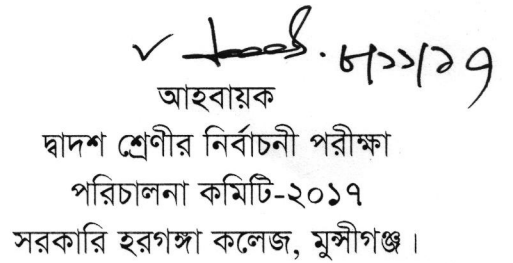 ৮/১১/১৭
আহবায়ক
দ্বাদশ শ্রেণীর নির্বাচনী পরীক্ষা
পরিচালনা কমিটি-২০১৭
সরকারি হরগঙ্গা কলেজ, মুন্সীগঞ্জ।